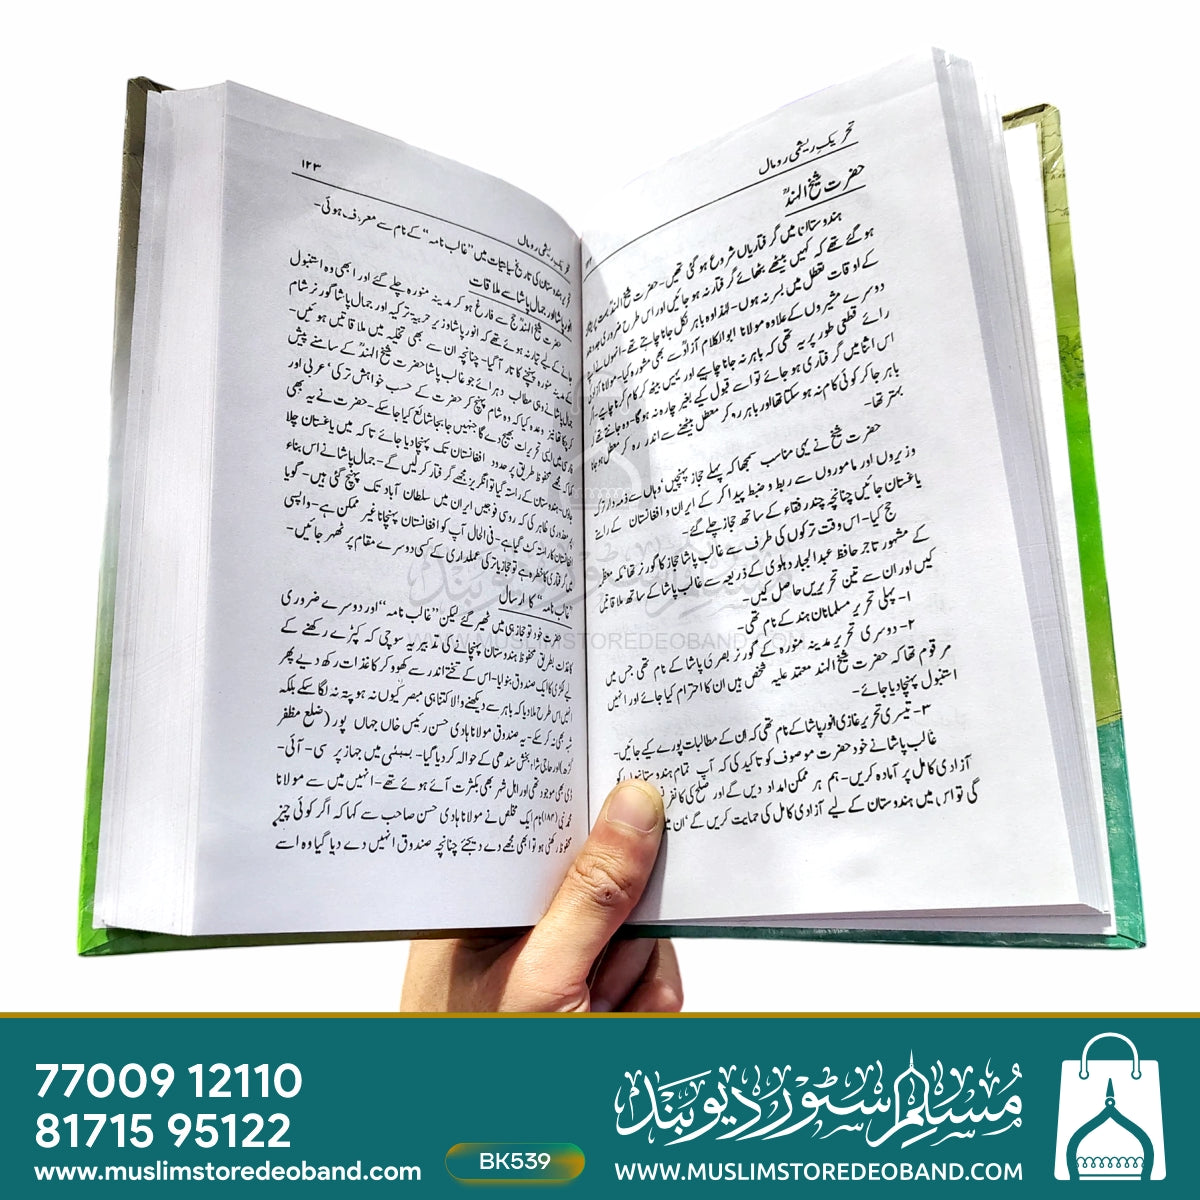 تحریکِ ریشمی رومال
حضرت شیخ الہندؒ
ہندوستان میں گرفتاریاں شروع ہو گئی تھیں۔ حضرت شیخ الہندؒ
ہو گئے تھے کہ کہیں بیٹھے بٹھائے گرفتار نہ ہو جائیں اور اس طرح ضروری
کے اوقات تعطل میں بسر نہ ہوں۔ لہٰذا وہ باہر نکل جانا چاہتے تھے۔ انہوں نے
دوسرے مشیروں کے علاوہ مولانا ابوالکلام آزادؒ سے بھی مشورہ کیا۔ مولانا آزاد
رائے قطعی طور پر یہ تھی کہ باہر نہ جانا چاہیے اور یہیں بیٹھ کر کام کرنا چاہیے۔
اس اثنا میں گرفتاری ہو جائے تو اسے قبول کیے بغیر چارہ نہ ہو گا۔ وہ جانتے تھے
باہر جا کر کوئی کام نہ ہو سکتا تھا اور باہر رہ کر معطل بیٹھنے سے اندر رہ کر معطل ہو جانا
بہتر تھا۔
حضرت شیخ نے یہی مناسب سمجھا کہ پہلے حجاز پہنچیں وہاں سے ذمہ دار ترک
وزیروں اور ماموروں سے ربط و ضبط پیدا کر کے ایران و افغانستان کے راستے
یاغستان جائیں چنانچہ چند رفقاء کے ساتھ حجاز چلے گئے۔
حج کیا۔ اس وقت ترکوں کی طرف سے غالب پاشا حجاز کا گورنر تھا مکہ معظمہ
کے مشہور تاجر حافظ عبدالجبار دہلوی کے ذریعہ سے غالب پاشا کے ساتھ ملاقاتیں
کیں اور ان سے تین تحریریں حاصل کیں۔
۱۔ پہلی تحریر مسلمانان ہند کے نام تھی۔
۲۔ دوسری تحریر مدینہ منورہ کے گورنر بصری پاشا کے نام تھی جس میں
مرقوم تھا کہ حضرت شیخ الہند معتمد علیہ شخص ہیں ان کا احترام کیا جائے اور انہیں
استنبول پہنچا دیا جائے۔
۳۔ تیسری تحریر غازی انور پاشا کے نام تھی کہ ان کے مطالبات پورے کیے جائیں۔
غالب پاشا نے خود حضرت موصوف کو تاکید کی کہ آپ تمام ہندوستانیوں کو
آزادی کامل پر آمادہ کریں۔ ہم ہر ممکن امداد دیں گے اور صلح کی
گی تو اس میں ہندوستان کے لیے آزادی کامل کی حمایت کریں گے
تحریک ریشمی رومال
۱۲۳
تحریر ہندوستان کی تاریخ سیاسیات میں ”غالب نامہ“ کے نام سے معروف ہوئی۔
انور پاشا اور جمال پاشا سے ملاقات
حضرت شیخ الہندؒ حج سے فارغ ہو کر مدینہ منورہ چلے گئے اور ابھی وہ استنبول
جانے کے لیے تیار نہ ہوئے تھے کہ انور پاشا وزیر حربیہ ترکیہ اور جمال پاشا گورنر شام
کے مدینہ منورہ پہنچنے کا تار آ گیا۔ چنانچہ ان سے بھی تخلیہ میں ملاقاتیں ہوئیں۔
جمال پاشا نے وہی مطالب دہرائے جو غالب پاشا حضرت شیخ الہندؒ کے سامنے پیش
کر چکا تھا نیز وعدہ کیا کہ وہ شام پہنچ کر حضرت کے حسب خواہش ترکی، عربی اور
فارسی میں ایسی تحریرات بھیج دے گا جنہیں جابجا شائع کیا جا سکے۔ حضرت نے یہ بھی
کہا کہ مجھے محفوظ طریق پر حدود افغانستان تک پہنچا دیا جائے تاکہ میں یاغستان چلا
جاؤں۔ ہندوستان کے راستہ گیا تو انگریز مجھے گرفتار کر لیں گے۔ جمال پاشا نے اس بناء
پر معذوری ظاہر کی کہ روسی فوجیں ایران میں سلطان آباد تک پہنچ گئی ہیں۔ گویا
افغانستان کا راستہ کٹ گیا ہے۔ فی الحال آپ کو افغانستان پہنچانا غیر ممکن ہے۔ واپسی
میں گرفتاری کا خطرہ ہے تو حجاز یا ترکی عملداری کے کسی دوسرے مقام پر ٹھہر جائیں۔
”غالب نامہ“ کا ارسال
حضرت خود تو حجاز ہی میں ٹھہر گئے لیکن ”غالب نامہ“ اور دوسرے ضروری
کاغذات بطریق محفوظ ہندوستان پہنچانے کی تدبیر یہ سوچی کہ کپڑے رکھنے کے
لیے لکڑی کا ایک صندوق بنوایا۔ اس کے تختے اندر سے کھود کر کاغذات رکھ دیے پھر
انہیں اس طرح ملا دیا کہ باہر سے دیکھنے والا کتنا ہی مبصر کیوں نہ ہو پتہ نہ لگا سکے بلکہ
شبہ بھی نہ کر سکے۔ یہ صندوق مولانا ہادی حسن رئیس خاں جہاں پور (ضلع مظفر
گڑھ) اور حاجی شاہ بخش سندھی کے حوالہ کر دیا گیا۔ بمبئی میں جہاز پر سی۔ آئی۔
ڈی بھی موجود تھی اور اہل شہر بھی بکثرت آئے ہوئے تھے۔ انہیں میں سے مولانا
محمد نبی (۱۸۳) نام ایک مخلص نے مولانا ہادی حسن صاحب سے کہا کہ اگر کوئی چیز
محفوظ رکھنی ہو تو ابھی مجھے دے دیجئے چنانچہ صندوق انہیں دے دیا گیا وہ اسے
مسلم سٹور دیوبند
WWW.MUSLIMSTOREDEOBAND.COM
77009 12110
81715 95122
www.muslimstoredeoband.com
BK539
مسلم سٹور دیوبند
WWW.MUSLIMSTOREDEOBAND.COM